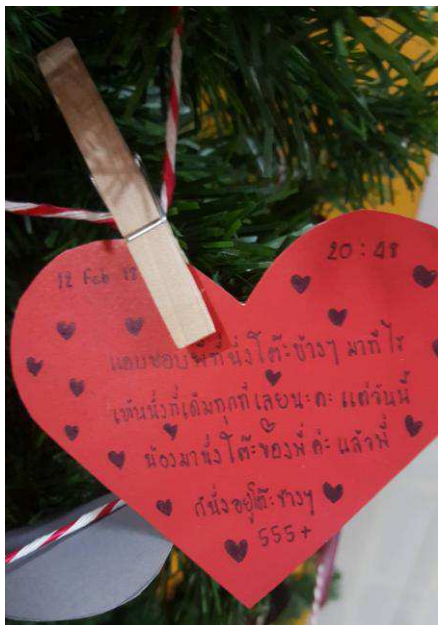 12 Feb 18
20:48
แอบชอบพี่ที่นั่งโต๊ะข้างๆ มาทีไร
เห็นนั่งที่เดิมทุกทีเลยนะคะ แต่วันนี้
น้องมานั่งโต๊ะของพี่ค่ะ แล้วพี่
ก็นั่งอยู่โต๊ะข้างๆ
555+